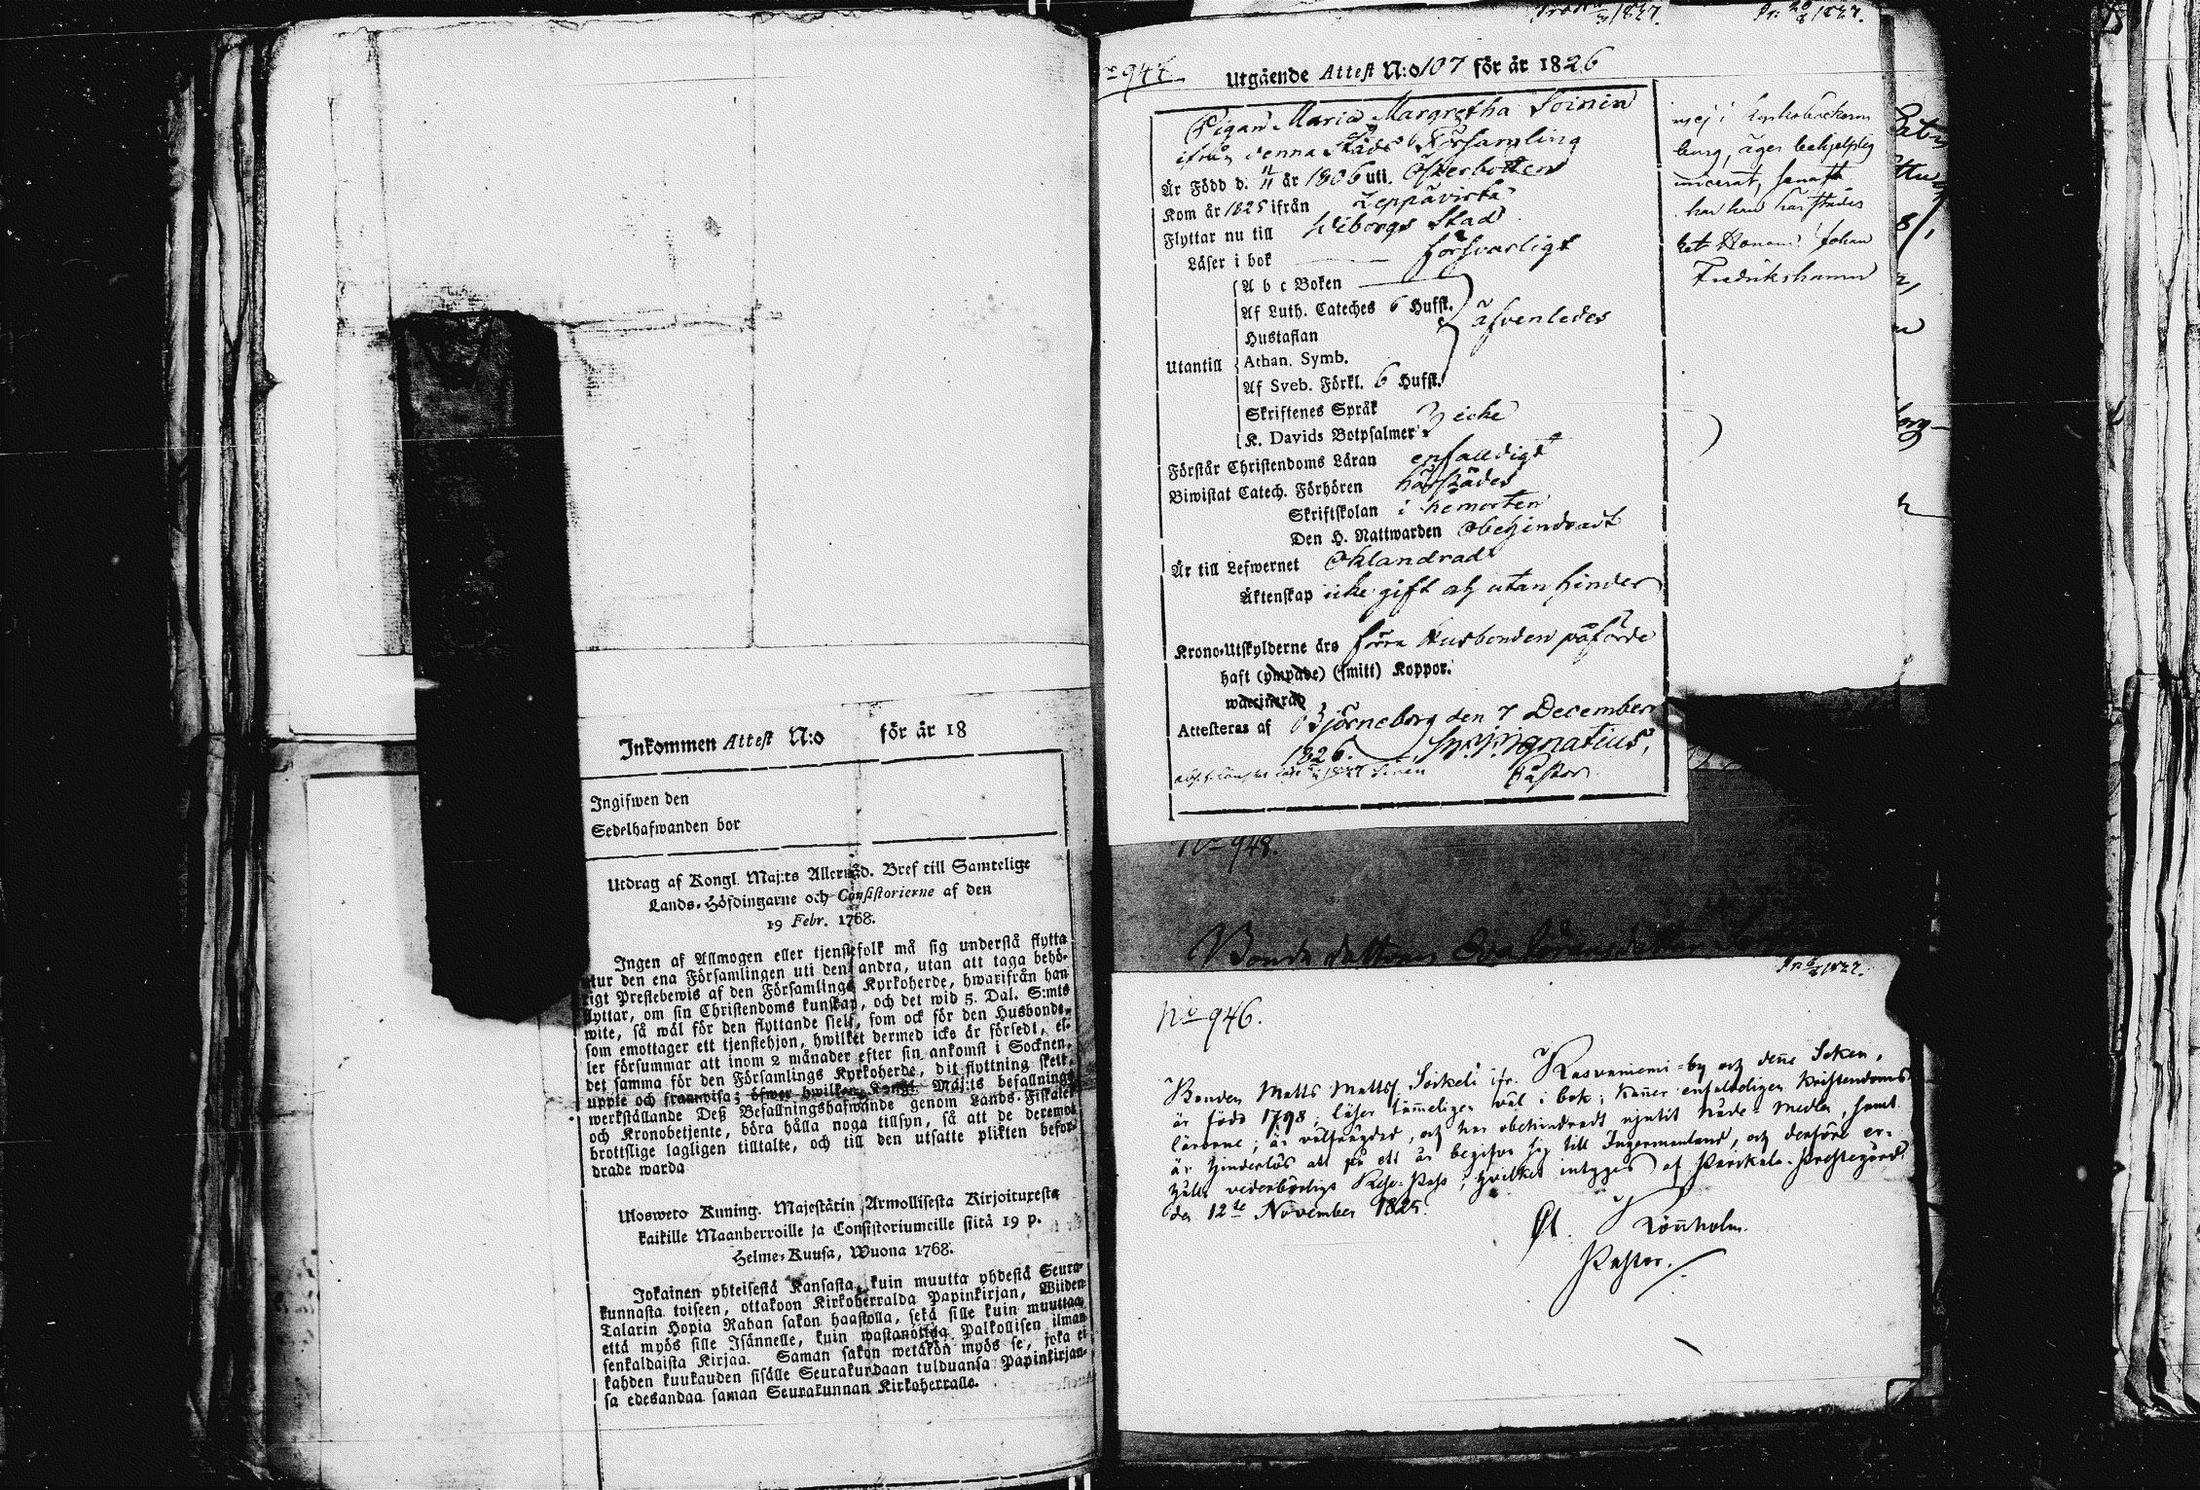 Inkommen Attest N:o för år 18
Ingifwen den
Sedelhafwanden bor
Utdrag af Kongl. Maj:ts Allernåd. Bref till Samtelige
Lands-Höfdingarne och Consistorierne af den
19 Febr. 1768.
Ingen af Allmogen eller tjenstefolk må sig understå flytta
utur den ena Församlingen uti den andra, utan att taga behö-
rigt Prestebewis af den Församlings Kyrkoherde, hwarifrån han
flyttar, om sin Christendoms kunskap, och det wid 5. Dal. S:mts
wite, så wäl för den flyttande sjelf, som ock för den Husbonde,
som emottager ett tjenstehjon, hwilket dermed icke är försedt, el-
ler försummar att inom 2 månader efter sin ankomst i Socknen,
det samma för den Församlings Kyrkoherde, dit flyttning skett,
uppte och framwisa; öfwer hwilken Kongl. Maj:ts befallnings
werkställande Deß Befallningshafwande genom Lands-Fiskaler
och Kronobetjente, böra hålla noga tillsyn, så att de deremot
brottslige lagligen tilltalte, och till den utsatte plikten befor-
drade warda
Ulosweto Kuning. Majestätin Armollisesta Kirjoituxesta
kaikille Maanherroille ja Consistoriumeille siitä 19 p.
Helme-Kuusa, Wuona 1768.
Jokainen yhteisestä Kansasta, kuin muutta yhdestä Seura-
kunnasta toiseen, ottakoon Kirkoherralda Papinkirjan, Wiiden
Talarin Hopia Rahan sakon haastolla, sekä sille kuin muuttaa,
että myös sille Isännelle, kuin wastanottaa Palkollisen ilman
senkaldaista Kirjaa. Saman sakon wetäkön myös se, joka ei
kahden kuukauden sisälle Seurakundaan tulduansa Papinkirjan-
sa edesandaa saman Seurakunnan Kirkoherralle.
No 947
Utgående Attest N:o 107 för år 1826
Pigan Maria Margretha Soinin
ifrån denna Stads Församling
Är Född d. 11/11 år 1806 uti. Österbotten
Kom år 1825 ifrån Leppävirta
Flyttar nu till Wiborgs Stad
Läser i bok försvarligt
A b c Boken
Af Luth. Cateches 6 Hufst.
Hustaflan äfvenledes
Utantill Athan. Symb.
Af Sveb. Förkl. 6 Hufst.
Skriftenes Språk
K. Davids Botpsalmer icke
Förstår Christendoms Läran enfalldigt
Biwistat Catech. Förhören härstädes
Skriftskolan i hemorten
Den H. Nattwarden obehindradt
Är till Lefwernet Oklandrad
Äktenskap icke gift och utan hinder
Krono-Utskylderne äro förra Husbonden påförde
haft (ympade) (smitt) Koppor.
waccinerad
Attesteras af Björneborg den 7 December
1826. Ignatius,
Pastor.
Fredrikshamn
No 948.
No 946.
Bonden Matts Matts Soikeli ifr. Rasvaniemi by och denne Soken,
är född 1798; läser tämmeligen wäl i bok; känner enfaldigen kristendoms
lärorne; är välfrägdad, och har obehindradt njutit Nåde-medlen, samt
är hinderlös att på ett år begifva sig till Ingermanland, och derföre er-
håller vederbörligt Rese-Pass; hvilket intygas af Parikala Prestegård
den 12te November 1825.
Lönnholm.
Pastor.